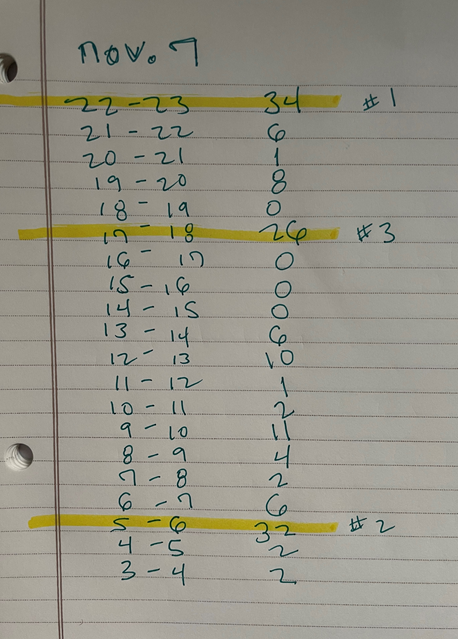 nov. 7
22-23 34 #1
21-22 6
20-21 1
19-20 8
18-19 0
17-18 26 #3
16-17 0
15-16 0
14-15 0
13-14 6
12-13 10
11-12 1
10-11 2
9-10 11
8-9 4
7-8 2
6-7 6
5-6 32 #2
4-5 2
3-4 2